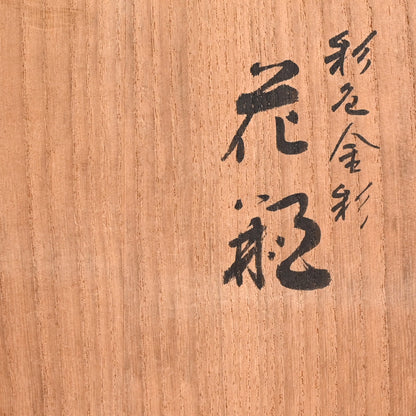 彩色金彩
花瓶